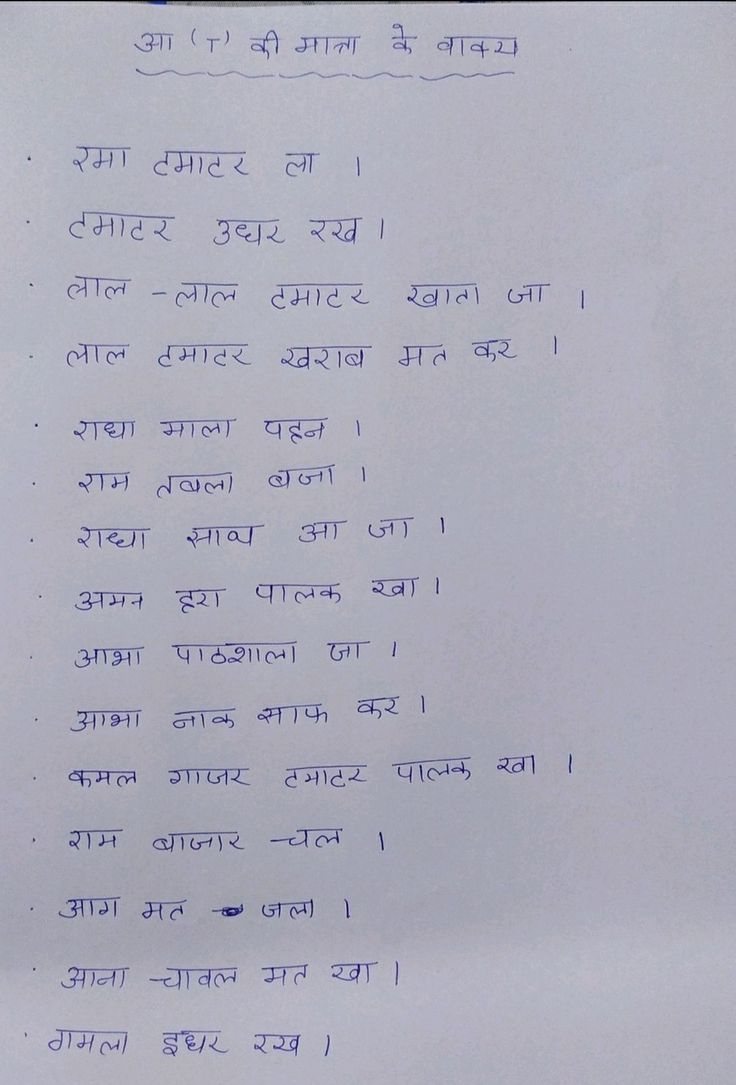 आ (ा) की मात्रा के वाक्य
रमा टमाटर ला ।
टमाटर उधर रख ।
लाल - लाल टमाटर खाता जा ।
लाल टमाटर खराब मत कर ।
राधा माला पहन ।
राम तबला बजा ।
राधा साथ आ जा ।
अमन हरा पालक खा ।
आभा पाठशाला जा ।
आभा नाक साफ कर ।
कमल गाजर टमाटर पालक खा ।
राम बाजार चल ।
आग मत जला ।
आना चावल मत खा ।
गमला इधर रख ।